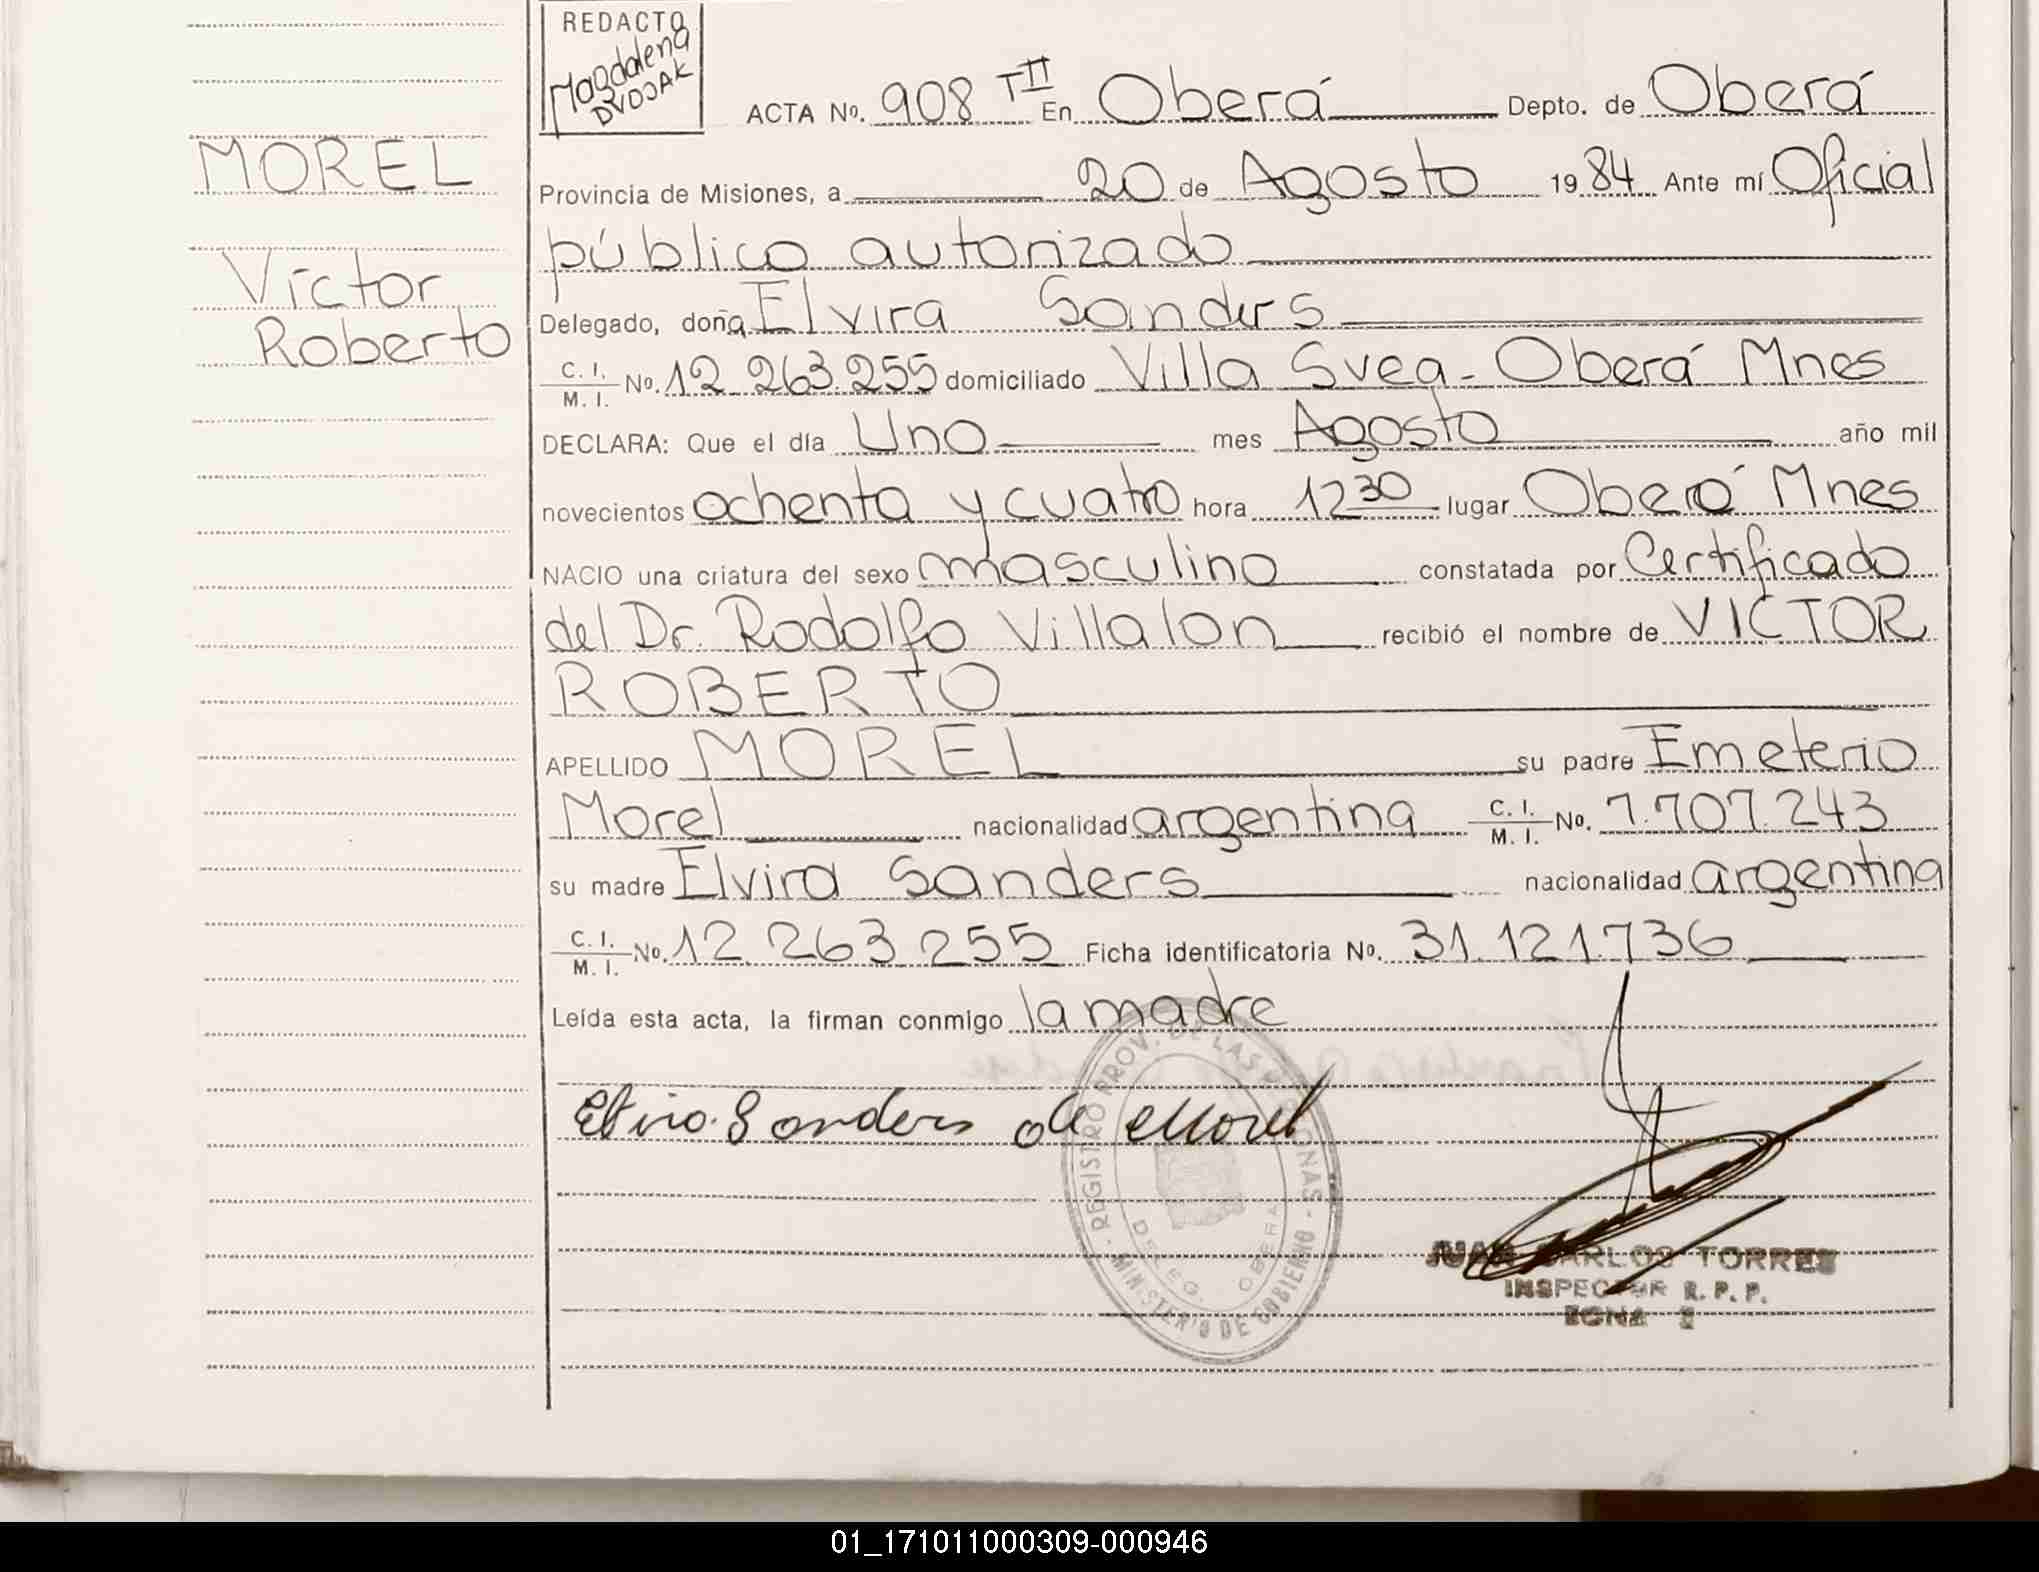 REDACTO
Magdalena
DVOJAK
ACTA Nº. 908 TII En Oberá Depto. de Oberá
MOREL
Provincia de Misiones, a 20 de Agosto 1984 Ante mí Oficial
público autorizado
Víctor
Delegado, doña Elvira Sanders
Roberto
C. I. M. I. No. 12.263.255 domiciliado Villa Svea - Oberá Mnes
DECLARA: Que el día Uno mes Agosto año mil
novecientos ochenta y cuatro hora 12 30 lugar Oberá Mnes
NACIO una criatura del sexo masculino constatada por Certificado
del Dr. Rodolfo Villalon recibió el nombre de VICTOR
ROBERTO
APELLIDO MOREL su padre Emeterio
Morel nacionalidad argentina C. I. M. I. No. 7.707.243
su madre Elvira Sanders nacionalidad argentina
C. I. M. I. No. 12.263.255 Ficha identificatoria No. 31.121.736
Leída esta acta, la firman conmigo la madre
Elvira Sanders de Morel
REGISTRO PROV. DE LAS PERSONAS - MINISTERIO DE GOBIERNO
DELEG. OBERA
JUAN CARLOS TORRES
INSPECTOR R. P. P.
ZONA
01_171011000309-000946